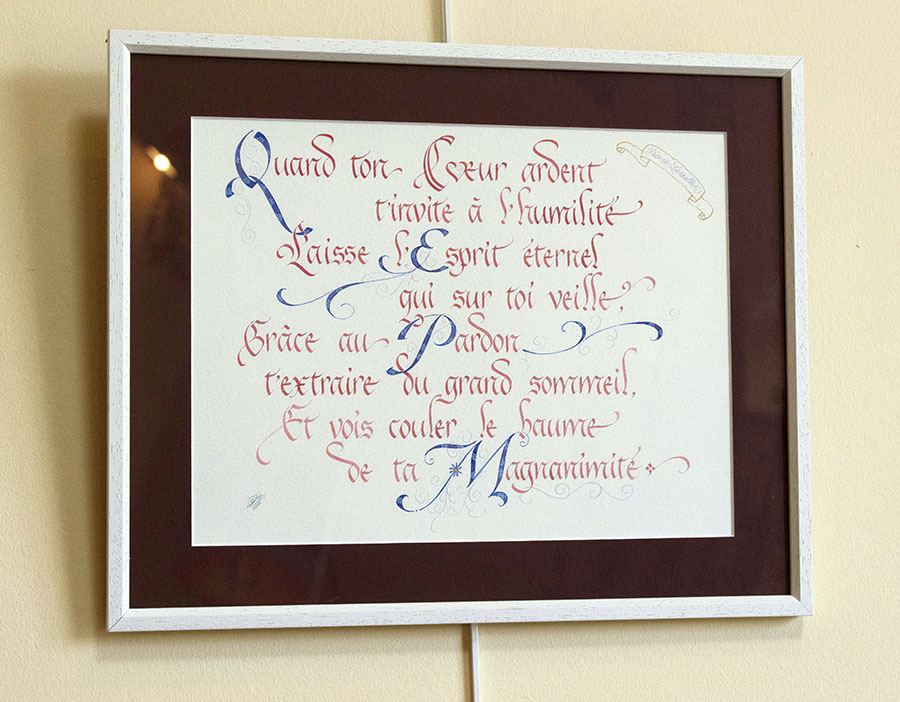 Quand ton Cœur ardent
t'invite à l'humilité
Laisse l'Esprit éternel
qui sur toi veille,
Grâce au Pardon
t'extraire du grand sommeil,
Et vois couler le baume
de ta Magnanimité